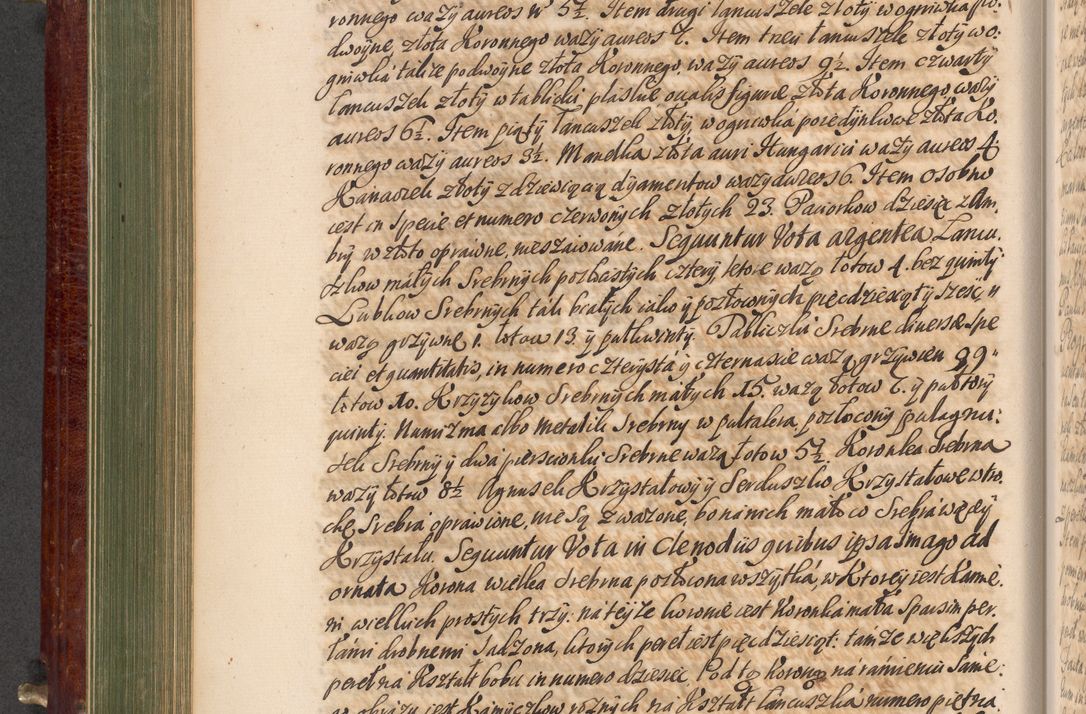 ronnego wazy aureos nr 5½. Item drugi lancuszek złoty w ogniwka po:
dwoyne, złota Koronnego wazy aureos 7. Item trzeci lancuszek złoty w o:
gniwka także podwoyne złota Koronnego, wazy aureos 9½. Item czwarty
lancuszek złoty w tabliczki płaskie oualis figurae złota Koronnego, wazy
aureos 6½. Item piąty Lancuszek złoty, w ogniwka poiedynkowe złota Ko:
ronnego wazy aureos 3½. Manelka złota auri Hungarici wazy aureos 4.
Kanaczek złoty z dziewiącią dyamentow wazy aureos 6. Item osobno
iest in specie et numero czerwonych złotych 23. Paciorkow dziesięc z Am:
bry w złoto oprawne, nieszaiowane. Sequuntur Vota argentea Lancu:
szkow małych Srebrnych pozłacistych cztery ktore wazą łotow 4. bez quinty
Lubkow Srebrnych tak białych iako y pozłoconych pięcdziesiąt y szesc, n
wazą grzywnę 1. łotow 13. y puł kwinty. Tabliczki Srebrne diversae spe
ciei et quantitatis, in numero czterysta y czternascie wazą grzywien 39"
łotow 10. Krzyzykow Srebrnych małych 15. wazą łotow 7. y pułtory
quinty. Numizma albo Metalik Srebrny w pultalera, pozłocony pulagnu:
sek Srebrny y dwa pierscionki Srebrne wazą łotow 5½. Koronka Srebrna
wazy łotow 8½. Agnusek Krzystałowy y Serduszko Krzystałowe, tro
chę Srebrá oprawione, nie są zwazone, bo na nich mało co Srebrá więcey
Krzystału. Sequuntur Vota in Clenodiis quibus ipsa Imago ad
ornata Korona wielka Srebrna pozłocona wszytká, w Ktorey iest Kamie:
ni wielkich prostych trzy: na teyże koronie iest Koronka mała Sparsim per:
łami drobnemi sadzona, ktorych pereł iest pięcdziesiąt: tamże większych
pereł na Kształt bobu in numero dziesiec. Pod tą Koroną na ramieniu same:
go obrázu iest Kamyczkow roznych na Kształt lancuszká numero piętna